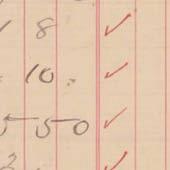 8 ✓
10 ✓
550 ✓
✓